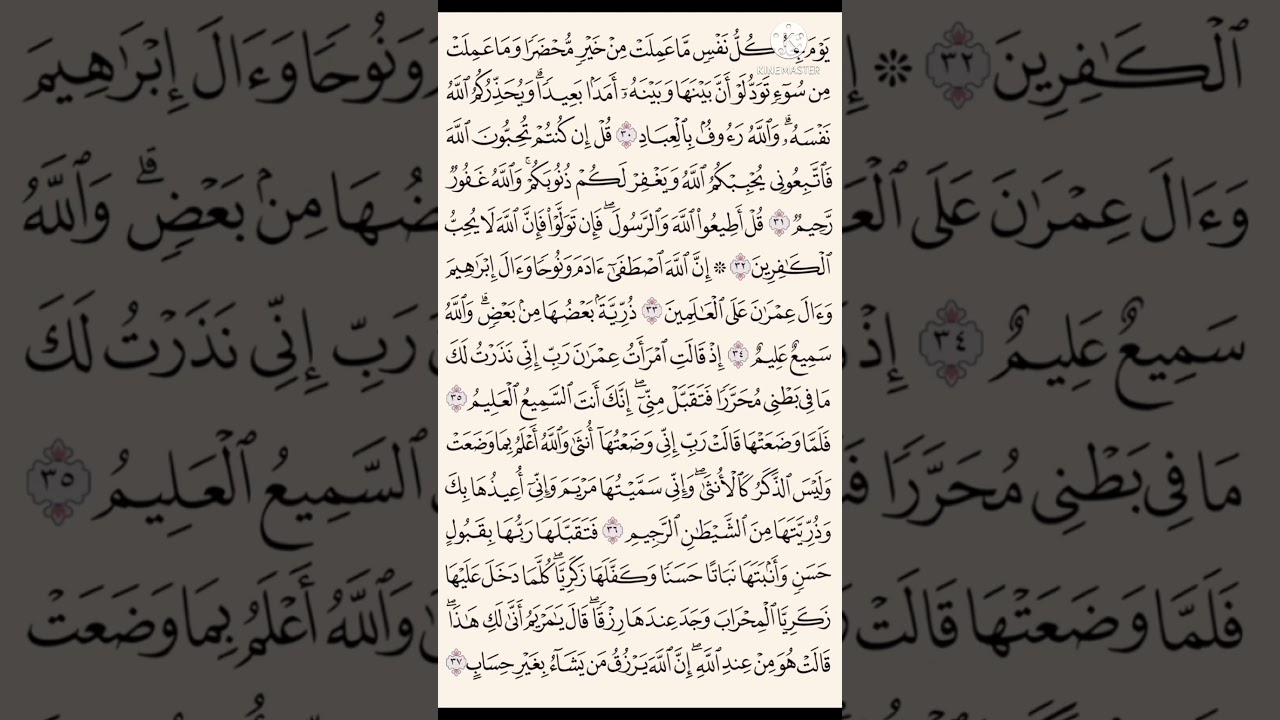 يَوْمَ كُلُّ نَفْسٍ مَّا عَمِلَتْ مِنْ خَيْرٍ مُّحْضَرًا وَمَا عَمِلَتْ
KINEMASTER
مِن سُوٓءٍ تَوَدُّ لَوْ أَنَّ بَيْنَهَا وَبَيْنَهُۥٓ أَمَدًۢا بَعِيدًا ۗ وَيُحَذِّرُكُمُ ٱللَّهُ
نَفْسَهُۥ ۗ وَٱللَّهُ رَءُوفٌۢ بِٱلْعِبَادِ ٣٠ قُلْ إِن كُنتُمْ تُحِبُّونَ ٱللَّهَ
فَٱتَّبِعُونِى يُحْبِبْكُمُ ٱللَّهُ وَيَغْفِرْ لَكُمْ ذُنُوبَكُمْ ۚ وَٱللَّهُ غَفُورٌ
رَّحِيمٌ ٣١ قُلْ أَطِيعُوا۟ ٱللَّهَ وَٱلرَّسُولَ ۖ فَإِن تَوَلَّوْا۟ فَإِنَّ ٱللَّهَ لَا يُحِبُّ
ٱلْكَـٰفِرِينَ ٣٢ ۞ إِنَّ ٱللَّهَ ٱصْطَفَىٰٓ ءَادَمَ وَنُوحًا وَءَالَ إِبْرَٰهِيمَ
وَءَالَ عِمْرَٰنَ عَلَى ٱلْعَـٰلَمِينَ ٣٣ ذُرِّيَّةًۢ بَعْضُهَا مِنۢ بَعْضٍ ۗ وَٱللَّهُ
سَمِيعٌ عَلِيمٌ ٣٤ إِذْ قَالَتِ ٱمْرَأَتُ عِمْرَٰنَ رَبِّ إِنِّى نَذَرْتُ لَكَ
مَا فِى بَطْنِى مُحَرَّرًا فَتَقَبَّلْ مِنِّىٓ ۖ إِنَّكَ أَنتَ ٱلسَّمِيعُ ٱلْعَلِيمُ ٣٥
فَلَمَّا وَضَعَتْهَا قَالَتْ رَبِّ إِنِّى وَضَعْتُهَآ أُنثَىٰ وَٱللَّهُ أَعْلَمُ بِمَا وَضَعَتْ
وَلَيْسَ ٱلذَّكَرُ كَٱلْأُنثَىٰ ۖ وَإِنِّى سَمَّيْتُهَا مَرْيَمَ وَإِنِّىٓ أُعِيذُهَا بِكَ
وَذُرِّيَّتَهَا مِنَ ٱلشَّيْطَـٰنِ ٱلرَّجِيمِ ٣٦ فَتَقَبَّلَهَا رَبُّهَا بِقَبُولٍ
حَسَنٍ وَأَنۢبَتَهَا نَبَاتًا حَسَنًا وَكَفَّلَهَا زَكَرِيَّا ۖ كُلَّمَا دَخَلَ عَلَيْهَا
زَكَرِيَّا ٱلْمِحْرَابَ وَجَدَ عِندَهَا رِزْقًا ۖ قَالَ يَـٰمَرْيَمُ أَنَّىٰ لَكِ هَـٰذَا ۖ
قَالَتْ هُوَ مِنْ عِندِ ٱللَّهِ ۖ إِنَّ ٱللَّهَ يَرْزُقُ مَن يَشَآءُ بِغَيْرِ حِسَابٍ ٣٧